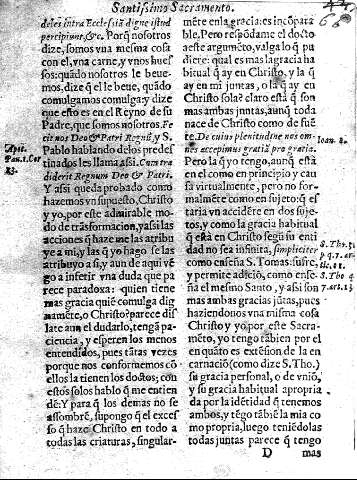 Santissimo Sacramento.
deles intra Ecclesiã digne istud
percipiunt, &c. Porq̃ nosotros
dize, somos vna mesma cosa
con el, vna carne, y vnos hues-
sos: quãdo nosotros le beue-
mos, dize q̃ el le beue, quãdo
comulgamos comulga: y dize
que esto es en el Reyno de su
Padre, que somos nosotros. Fe-
cit nos Deo & Patri Regnũ, y S.
Pablo hablando delos predes-
tinados les llama assi. Cum tra-
diderit Regnum Deo & Patri.
Y assi queda probado como
hazemos vn supuesto, Christo
y yo, por este admirable mo-
do de trasformacion, ya si las
acciones q̃ haze me las atribu-
ye a mi, y las q̃ yo hago se las
atribuyo a si, y aun de aqui vẽ-
go a inferir vna duda que pa-
rece paradoxa: quien tiene
mas gracia quiẽ comulga dig
namẽte, o Christo? parece dis
late aun el dudarlo, tengã pa-
ciencia, y esperen los menos
entendidos, pues tãtas vezes
porque nos conformemos cõ
ellos la tienen los doctos; con
estos solos hablo q̃ me entien
dẽ: Y para q̃ los demas no se
assombrẽ, supongo q̃ el exces-
so q̃ haze Christo en todo a
todas las criaturas, singular-
Apoc.
Pau. 1. Cor
mẽte en la gracia: es incõpara
ble, Pero respõdame el docto
aeste argumẽto, valga lo q̃ pu
diere: qual es mas la gracia ha
bitual q̃ ay en Christo, y la q̃
ay en mi juntas, o la q̃ ay en
Christo sola? claro está q̃ son
mas ambas juntas, aunq̃ toda
nace de Christo como de fuẽ
te. De cuius plenitudine nos om-
nes accepimus gratiã pro gratia.
Pero la q̃ yo tengo, aunq̃ está
en el como en principio y cau
sa virtualmente, pero no for-
malmente como en sujeto: q̃ es
taria vn accidẽte en dos suje-
tos, y como la gracia habitual
q̃ está en Christo segũ su enti
dad no sea infinita, simpliciter
como enseña S. Tomas: sufre,
y permite adiciõ, como ense-
ña el mesmo Santo, y assi son
mas ambas gracias jũtas, pues
haziendonos vna misma cosa
Christo y yo, por este Sacra-
mẽto, yo tengo tãbien por el
en quãto es extẽsion de la en
carnaciõ (como dize S. Tho.)
su gracia personal, o de vniõ,
y su gracia habitual apropria
da por la idẽtidad q̃ tenemos
ambos, y tẽgo tãbiẽ la mia co
mo propria, luego teniẽdolas
todas juntas parece q̃ tengo
Ioan.
S. Tho.
S. Tho
D mas